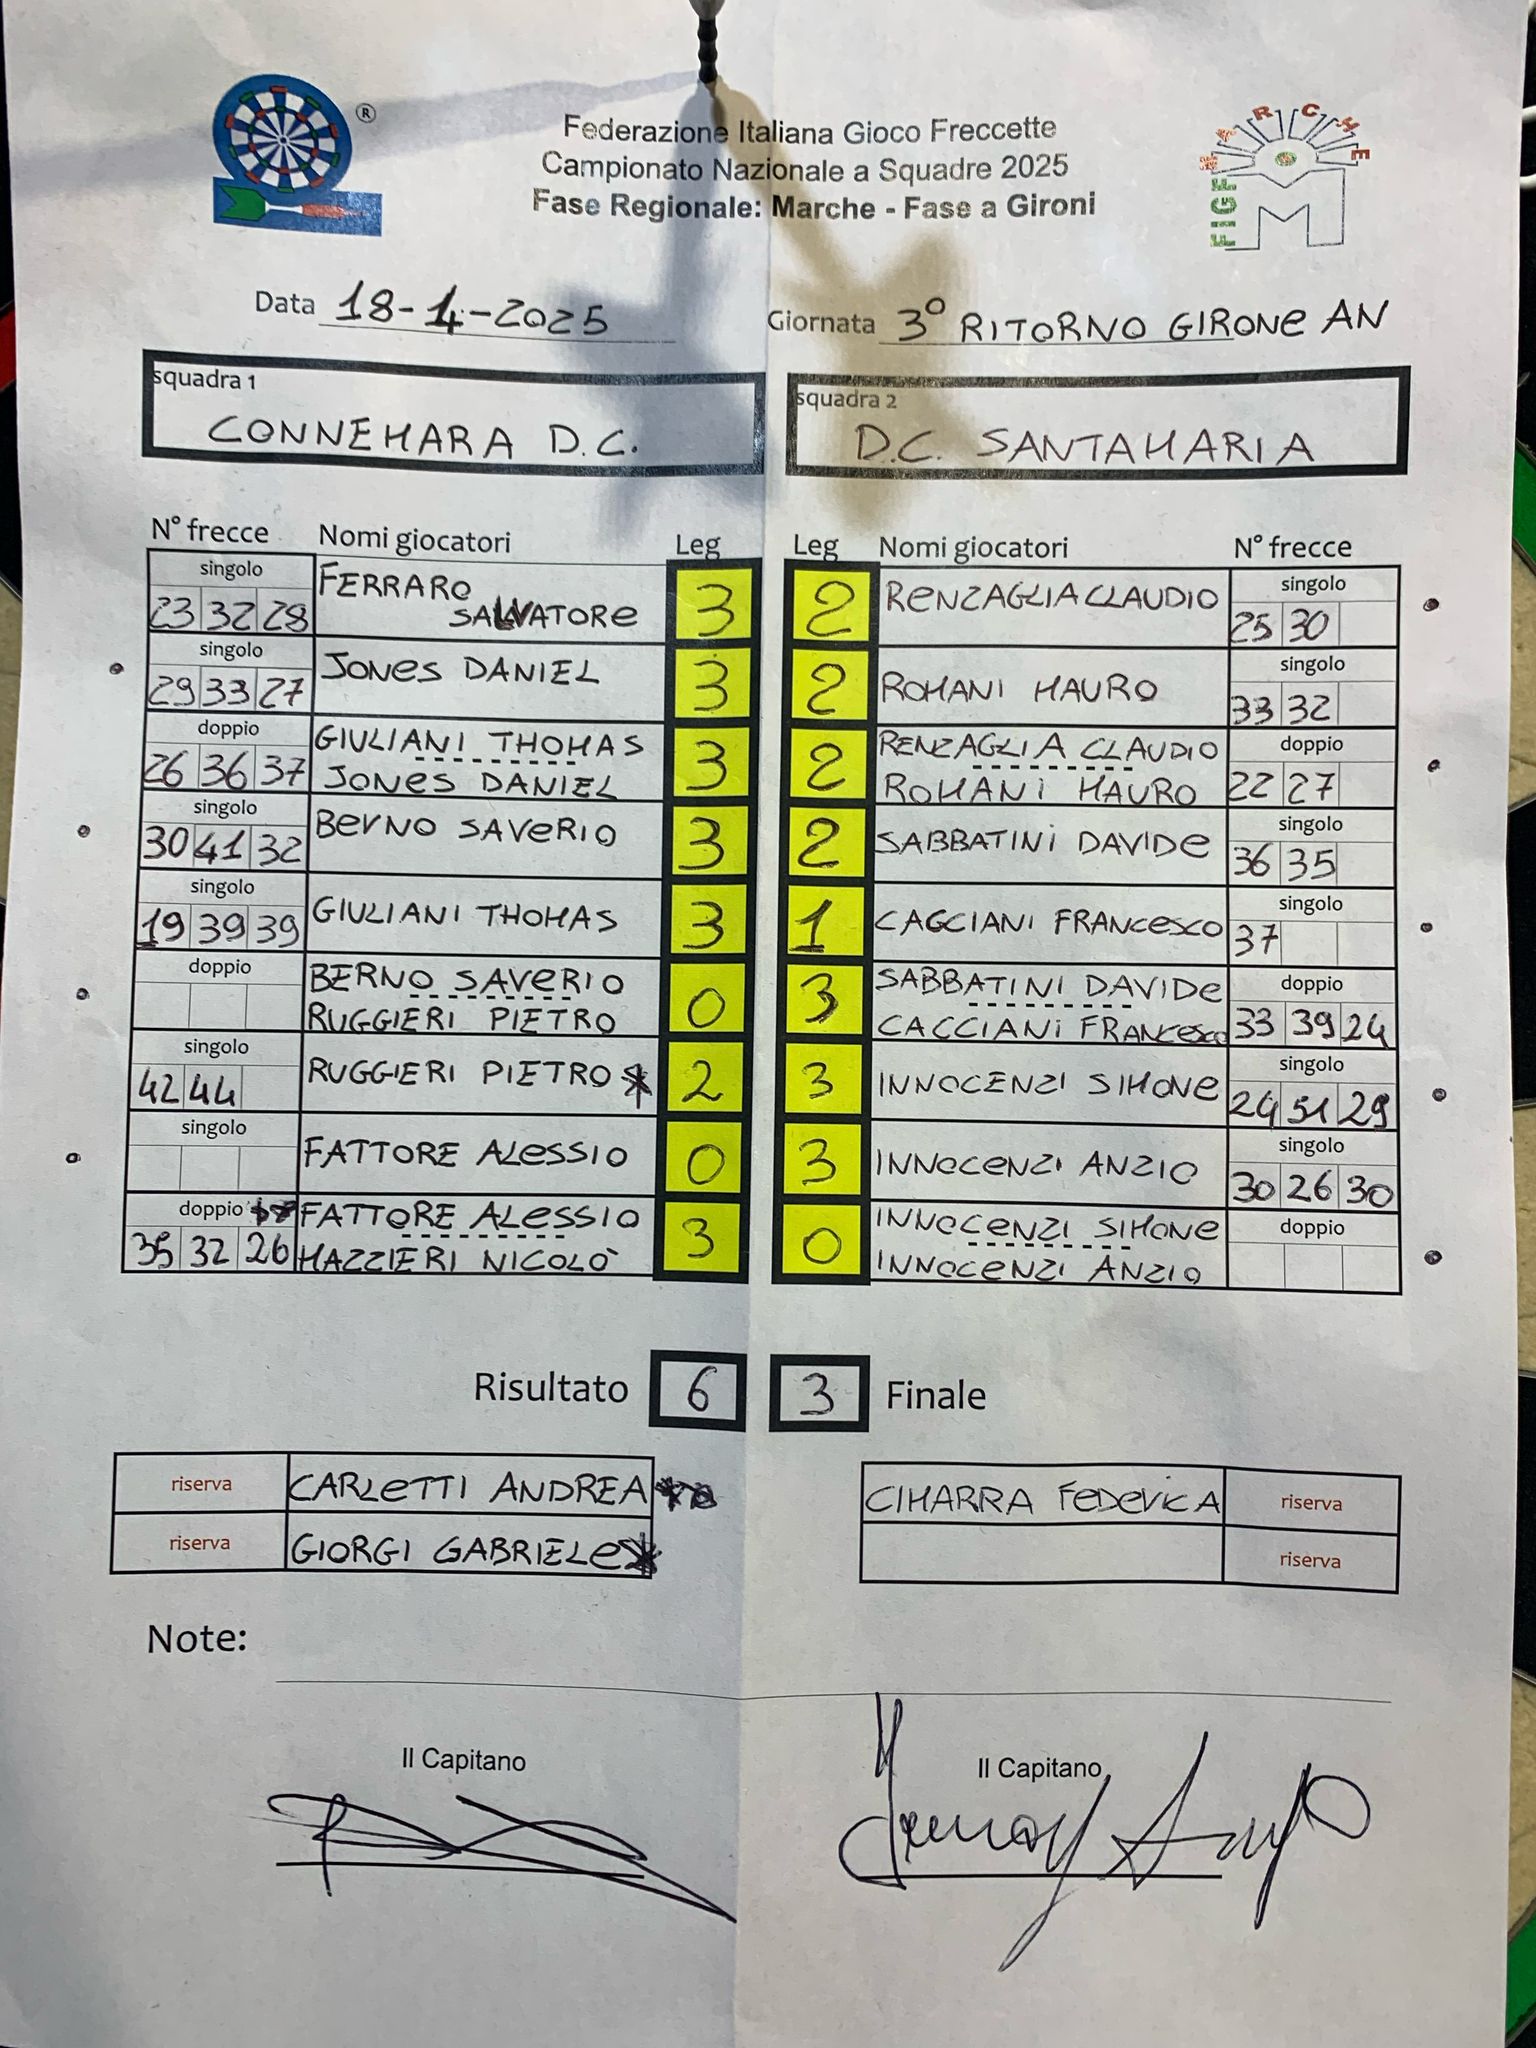 ®
FIGF MARCHE
Federazione Italiana Gioco Freccette
Campionato Nazionale a Squadre 2025
Fase Regionale: Marche - Fase a Gironi
Data 18-4-2025 Giornata 3° RITORNO GIRONE AN
squadra 1 squadra 2
CONNEMARA D.C. D.C. SANTAMARIA
N° frecce Nomi giocatori Leg Leg Nomi giocatori N° frecce
singolo FERRARO SALVATORE 3 2 RENZAGLIA CLAUDIO singolo
23 32 28 25 30
singolo JONES DANIEL 3 2 ROMANI MAURO singolo
29 33 27 33 32
doppio GIULIANI THOMAS 3 2 RENZAGLIA CLAUDIO doppio
26 36 37 JONES DANIEL ROMANI MAURO 22 27
singolo BERNO SAVERIO 3 2 SABBATINI DAVIDE singolo
30 41 32 36 35
singolo GIULIANI THOMAS 3 1 CACCIANI FRANCESCO singolo
19 39 39 37
doppio BERNO SAVERIO 0 3 SABBATINI DAVIDE doppio
RUGGIERI PIETRO CACCIANI FRANCESCO 33 39 24
singolo RUGGIERI PIETRO * 2 3 INNOCENZI SIMONE singolo
42 44 24 51 29
singolo FATTORE ALESSIO 0 3 INNOCENZI ANZIO singolo
30 26 30
doppio FATTORE ALESSIO 3 0 INNOCENZI SIMONE doppio
35 32 26 MAZZIERI NICOLÒ INNOCENZI ANZIO
Risultato 6 3 Finale
riserva CARLETTI ANDREA CIMARRA FEDERICA riserva
riserva GIORGI GABRIELE riserva
Note:
Il Capitano Il Capitano